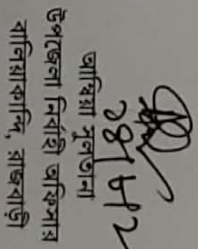 আম্বিয়া সুলতানা
উপজেলা নির্বাহী অফিসার
বালিয়াকান্দি, রাজবাড়ী